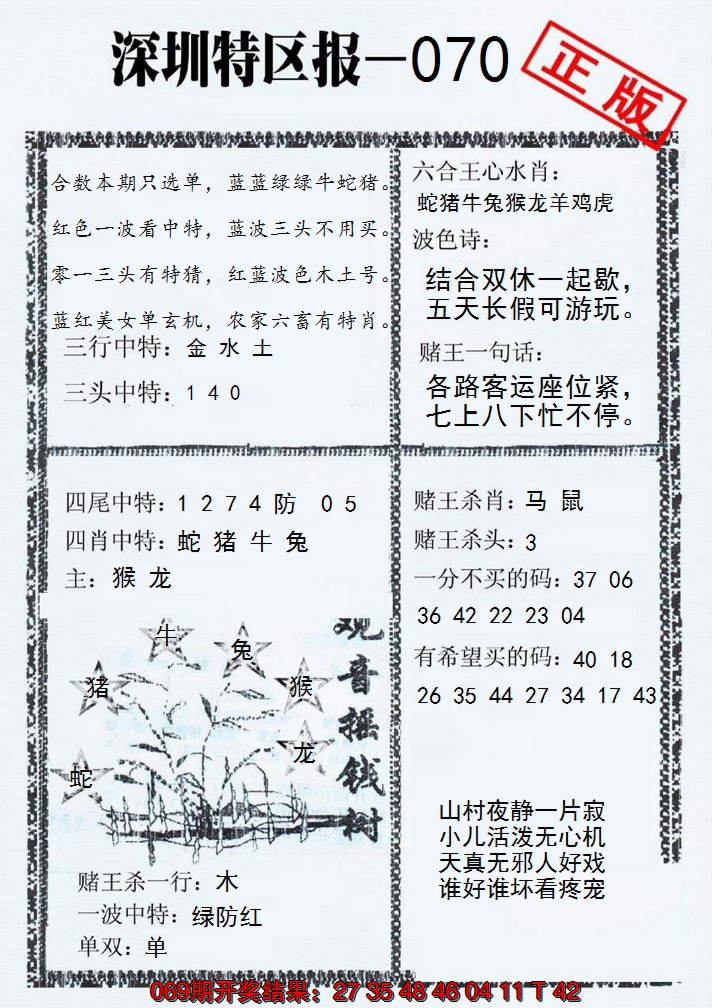 深圳特区报—070
正版
合数本期只选单，蓝蓝绿绿牛蛇猪。
红色一波看中特，蓝波三头不用买。
零一三头有特猜，红蓝波色木土号。
蓝红美女单玄机，农家六畜有特肖。
三行中特：金 水 土
三头中特：1 4 0
六合王心水肖：
蛇猪牛兔猴龙羊鸡虎
波色诗：
结合双休一起歇，
五天长假可游玩。
赌王一句话：
各路客运座位紧，
七上八下忙不停。
四尾中特：1 2 7 4 防 0 5
四肖中特：蛇 猪 牛 兔
主：猴 龙
牛
兔
猪
猴
龙
蛇
观音摇钱树
赌王杀一行：木
一波中特：绿防红
单双：单
赌王杀肖：马 鼠
赌王杀头：3
一分不买的码：37 06
36 42 22 23 04
有希望买的码：40 18
26 35 44 27 34 17 43
山村夜静一片寂
小儿活泼无心机
天真无邪人好戏
谁好谁坏看疼宠
069期开奖结果：27 35 48 46 04 11 T 42